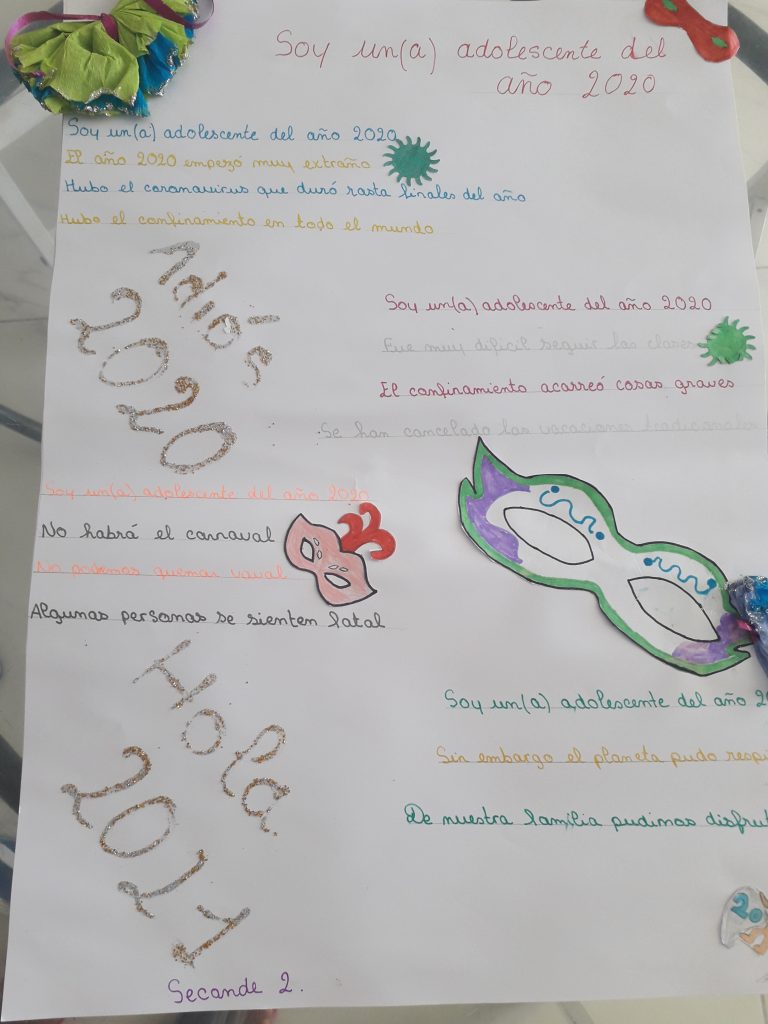 Soy un(a) adolescente del
año 2020
Soy un(a) adolescente del año 2020
El año 2020 empezó muy extraño
Hubo el coronavirus que duró rasta finales del año
Hubo el confinamiento en todo el mundo
Adiós
2020
Soy un(a) adolescente del año 2020
Fue muy difícil seguir las clases
El confinamiento acarreó cosas graves
Se han cancelado las vacaciones tradicionales
Soy un(a) adolescente del año 2020
No habrá el carnaval
No podemos quemar vaval
Algunas personas se sienten fatal
Hola
2021
Soy un(a) adolescente del año 2
Sin embargo el planeta pudo respi
De nuestra familia pudimos disfrut
20
Seconde 2.